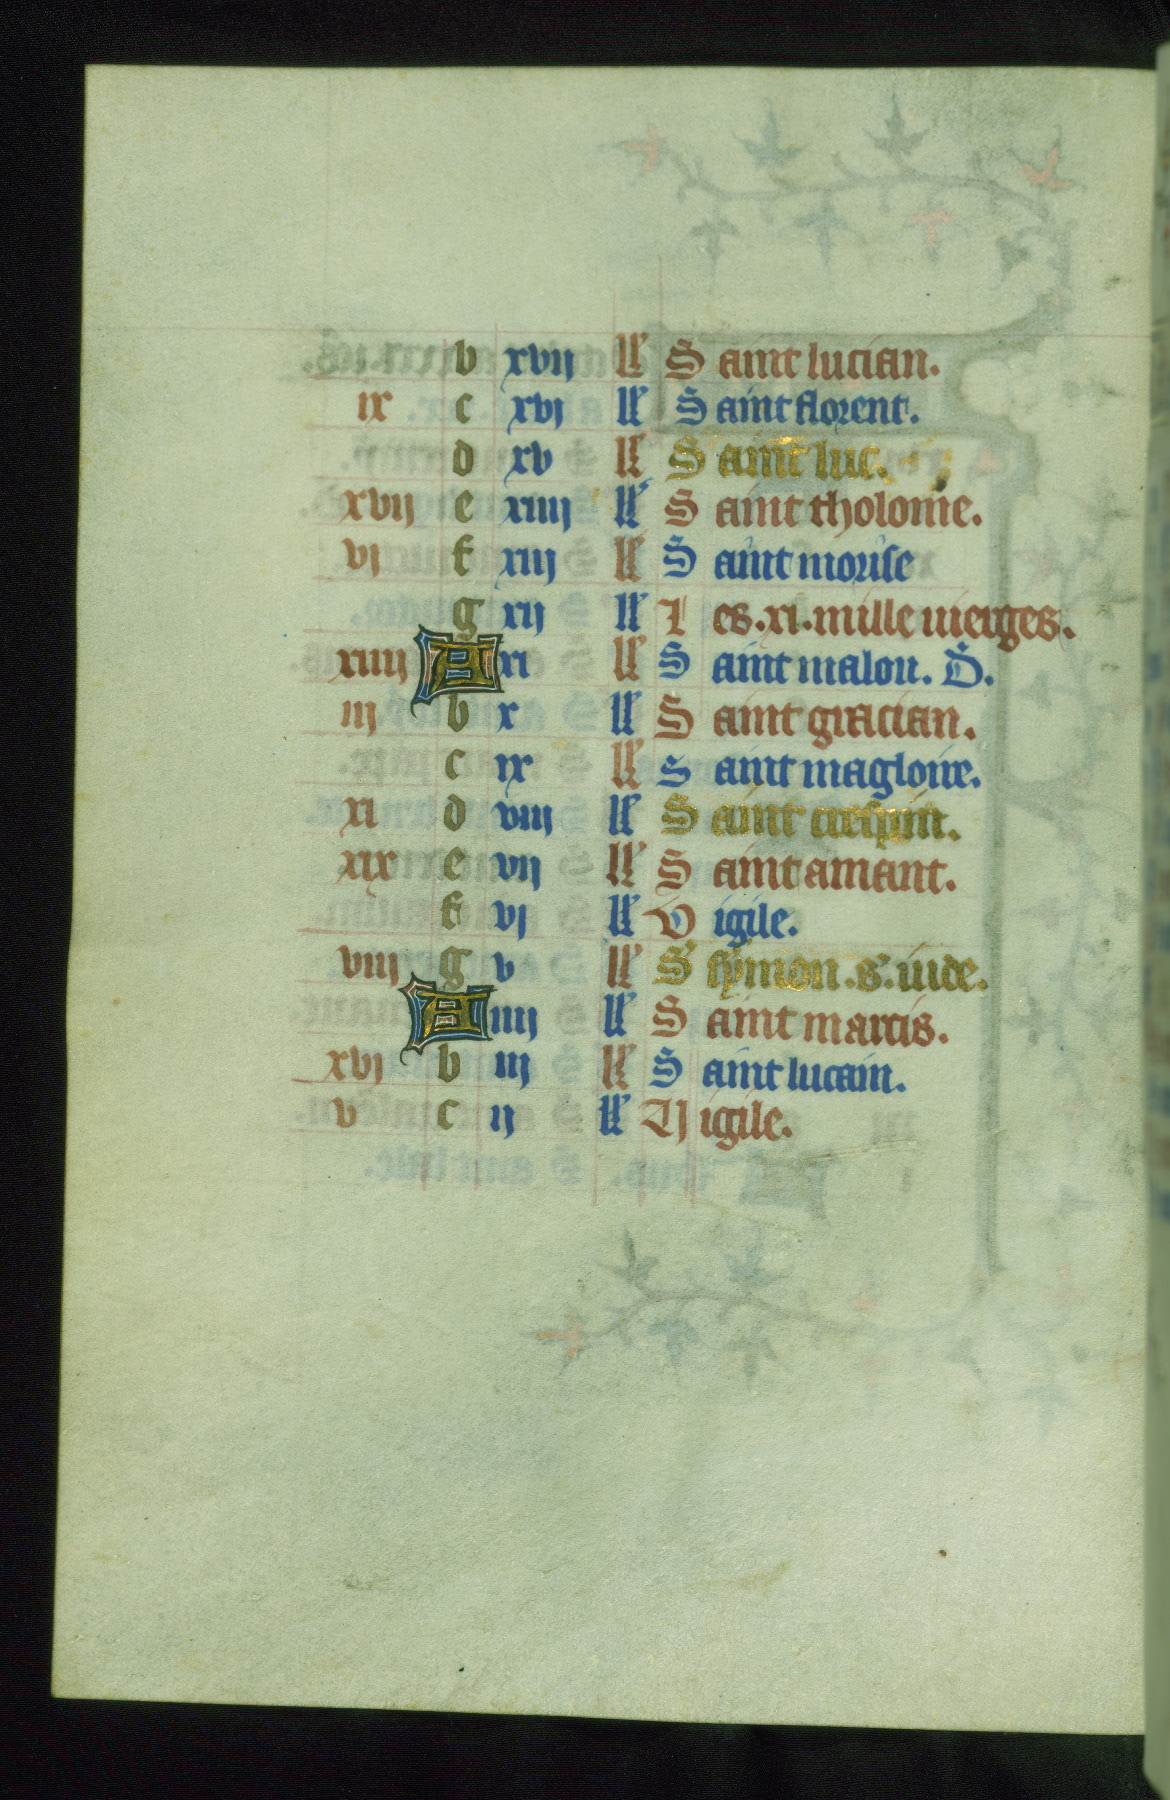 b xvij kl Saint lucian.
ix c xvj kl Saint florent.
d xv kl Saint luc.
xvij e xiiij kl Saint tholome.
vj f xiij kl Saint morise
g xij kl Les .xi. mille vierges.
xiiij A xi kl Saint malou. D.
iij b x kl Saint gracian.
c ix kl Saint magloire.
xi d viij kl Saint crespin.
xix e vij kl Saint amant.
f vj kl Vigile.
viij g v kl S symon .s. iude.
A iiij kl Saint marcis.
xvj b iij kl Saint lucain.
v c ij kl Vigile.